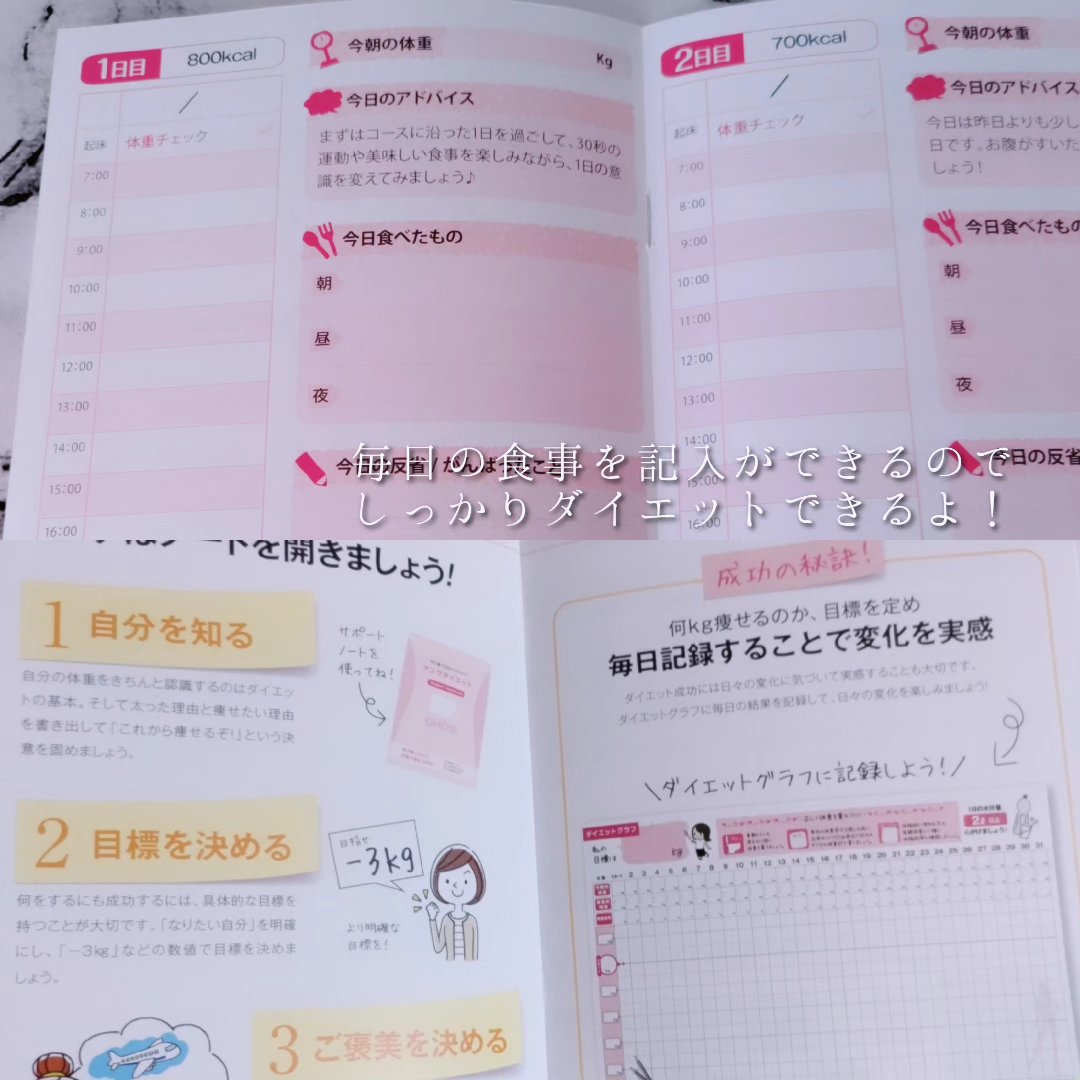 1日目 800kcal
/
起床 体重チェック
7:00
8:00
9:00
10:00
11:00
12:00
13:00
14:00
15:00
16:00
今朝の体重 Kg
今日のアドバイス
まずはコースに沿った1日を過ごして、30秒の
運動や美味しい食事を楽しみながら、1日の意
識を変えてみましょう♪
今日食べたもの
朝
昼
夜
今日の反省/がんばったこと
2日目 700kcal
/
起床 体重チェック
7:00
8:00
9:00
10:00
11:00
12:00
13:00
14:00
15:00
16:00
今朝の体重
今日のアドバイス
今日は昨日よりも少し
日です。お腹がすいた
しょう!
今日食べたもの
朝
昼
夜
今日の反省
毎日の食事を記入ができるので
しっかりダイエットできるよ!
ノートを開きましょう!
1 自分を知る
自分の体重をきちんと認識するのはダイエッ
トの基本。そして太った理由と痩せたい理由
を書き出して「これから痩せるぞ!」という決
意を固めましょう。
サポート
ノートを
使ってね!
2 目標を決める
何をするにも成功するには、具体的な目標を
持つことが大切です。「なりたい自分」を明確
にし、「−3kg」などの数値で目標を決めま
しょう。
目指せ
−3kg
より明確な
目標を!
3 ご褒美を決める
成功の秘訣!
何kg痩せるのか、目標を定め
毎日記録することで変化を実感
ダイエット成功には日々の変化に気づいて実感することも大切です。
ダイエットグラフに毎日の結果を記録して、日々の変化を楽しみましょう!
\ダイエットグラフに記録しよう!/
ダイエットグラフ
私の
目標は kg
1日の水分量
2ℓ以上
心がけましょう!
2 3 4 5 6 7 8 9 10 11 12 13 14 15 16 17 18 19 20 21 22 23 24 25 26 27 28 29 30 31